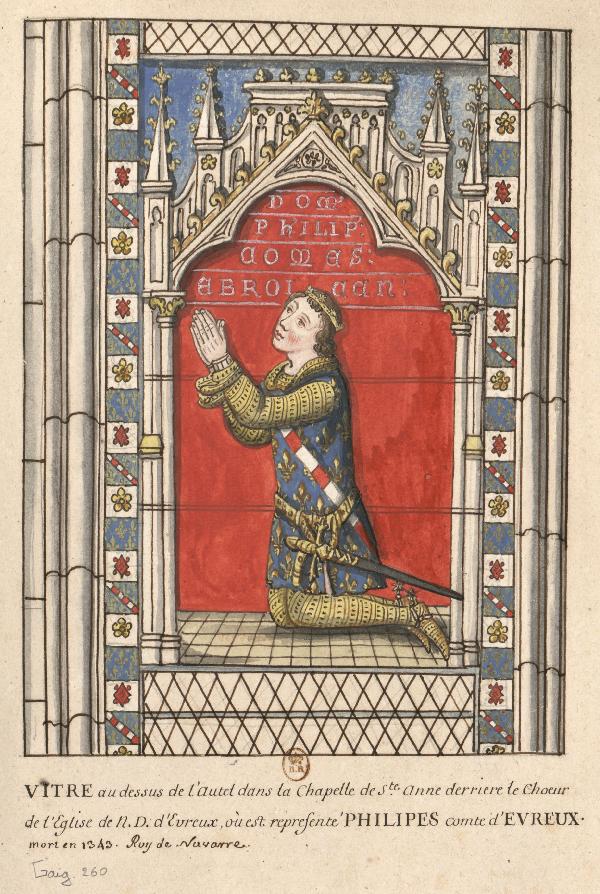 DOM
PHILIP:
COMES:
EBROICEN:
B.R
VITRE au dessus de l'Autel dans la Chapelle de Ste. Anne derriere le Choeur
de l'Eglise de N.D. d'Evreux, où est represente PHILIPES comte d'EVREUX.
mort en 1343. Roy de Navarre.
Gaig. 260